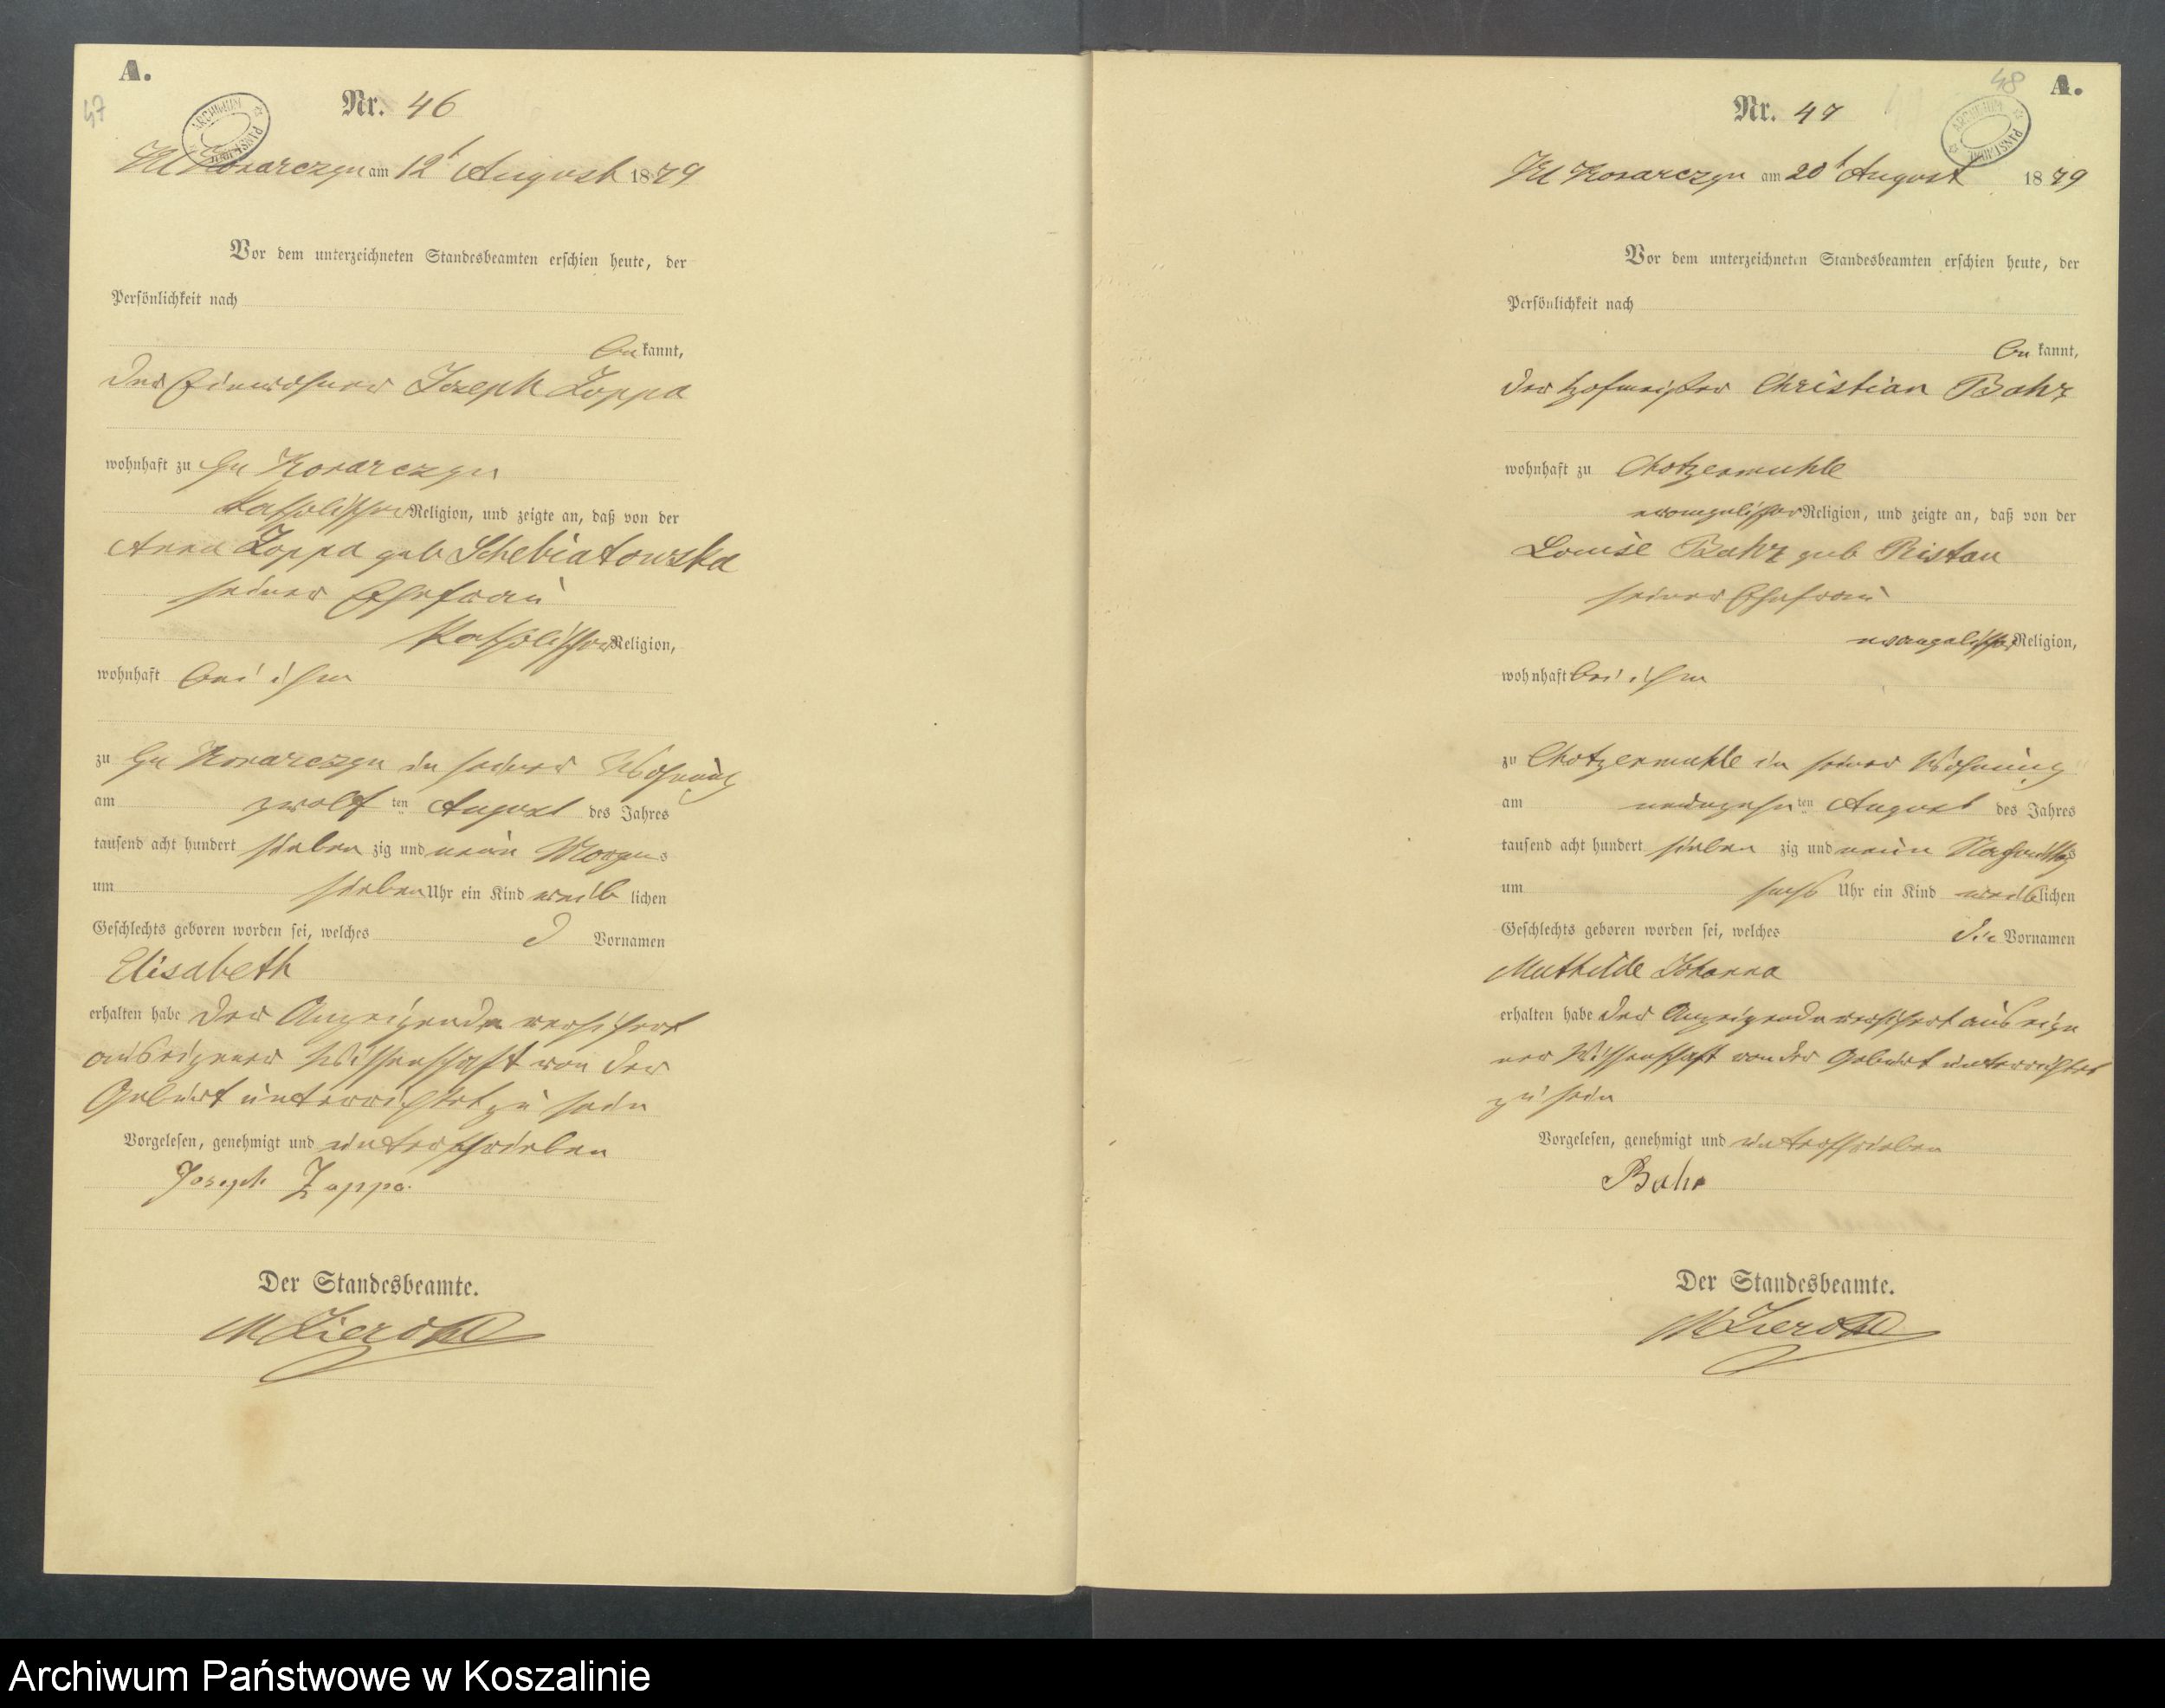 A.
47
Nr. 46
ARCHIWUM PAŃSTWOWE
Kl Kosarczyn am 12t August 1879
Vor dem unterzeichneten Standesbeamten erschien heute, der
Persönlichkeit nach
be kannt,
der Einwohner Joseph Zoppa
wohnhaft zu Gr Kosarczyn
katholischer Religion, und zeigte an, daß von der
Anna Zoppa geb Schebiatowska
seiner Ehefrau
katholischer Religion,
wohnhaft bei ihm
zu Gr Kosarczyn in seiner Wohnung
am zwölf ten August des Jahres
tausend acht hundert sieben zig und neun Morgens
um sieben Uhr ein Kind weib lichen
Geschlechts geboren worden sei, welches d Vornamen
Elisabeth
erhalten habe der Anzeigende versichert
aus eigener Wissenschaft von der
Geburt unterrichtet zu sein
Vorgelesen, genehmigt und unterschrieben
Joseph Zoppa.
Der Standesbeamte.
48
A.
Nr. 47
ARCHIWUM PAŃSTWOWE
Kl Kosarczyn am 20t August 1879
Vor dem unterzeichneten Standesbeamten erschien heute, der
Persönlichkeit nach
be kannt,
der Hofmeister Christian Bahr
wohnhaft zu Chotzenmühle
evangelischer Religion, und zeigte an, daß von der
Louise Bahr geb Ristau
seiner Ehefrau
evangelischer Religion,
wohnhaft bei ihm
zu Chotzenmühle in seiner Wohnung
am neunzehn ten August des Jahres
tausend acht hundert sieben zig und neun Nachmittags
um sechs Uhr ein Kind weib lichen
Geschlechts geboren worden sei, welches die Vornamen
Mathilde Johanna
erhalten habe der Anzeigende versichert aus eige
ner Wissenschaft von der Geburt unterrichtet
zu sein
Vorgelesen, genehmigt und unterschrieben
Bahr
Der Standesbeamte.
Archiwum Państwowe w Koszalinie